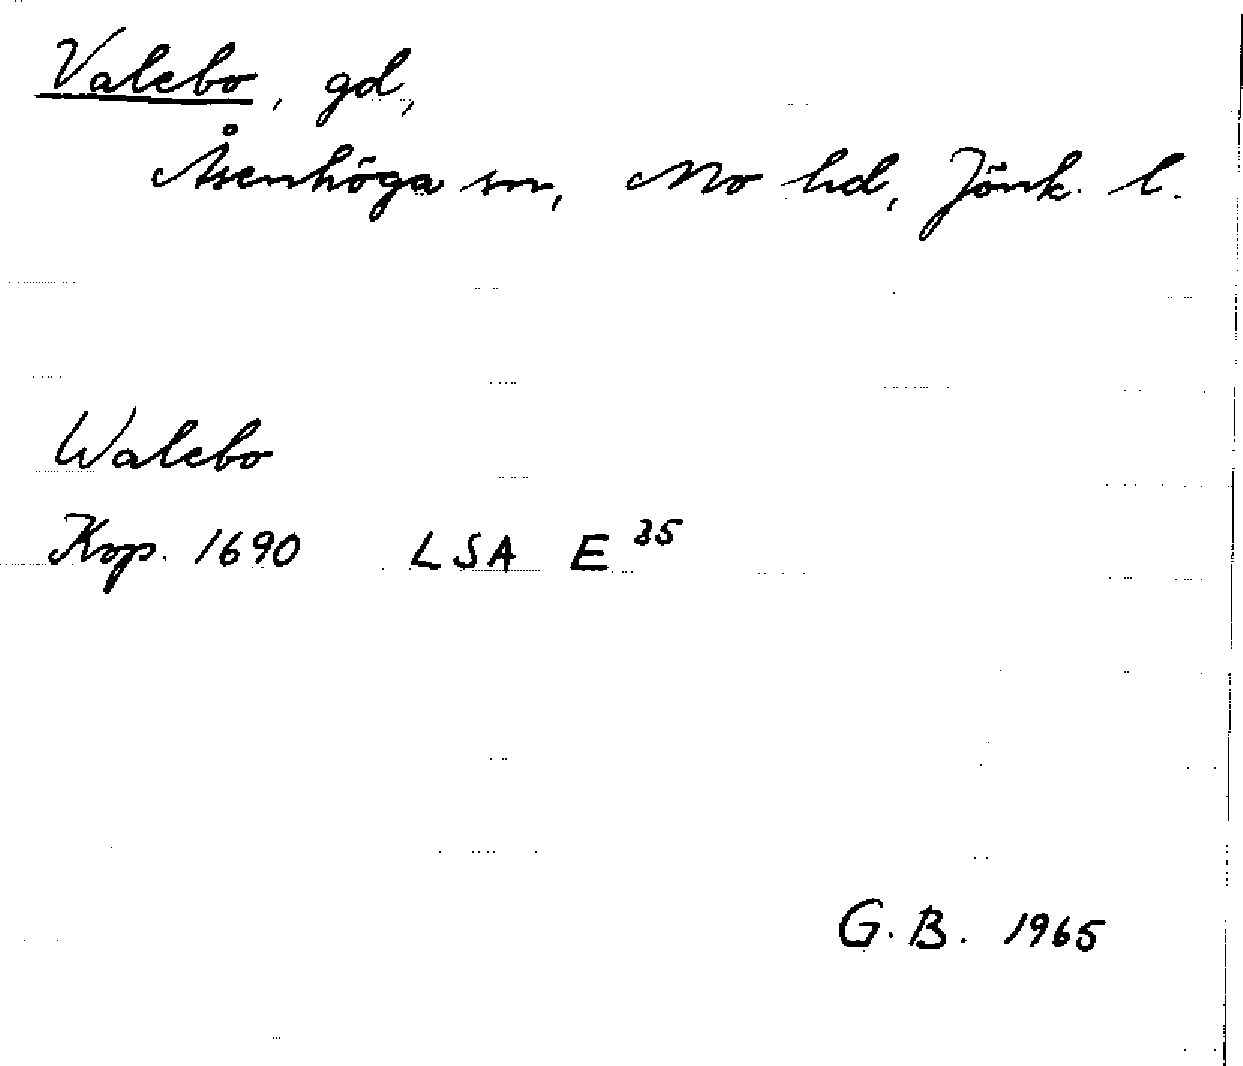 Valebo, gd,
Åsenhöga sn, Mo hd, Jönk. l.
Walebo
Kop. 1690 LSA E 35
G.B. 1965